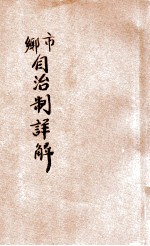 市鄉自治制詳解